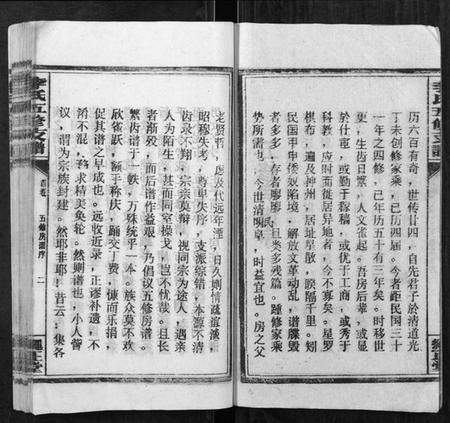 历六百有奇，世传廿四，自先君子於清道光
丁未创修家乘，已历四届。今者距民国三十
一年之四修，已年历五十有三年矣。时移世
更，生齿日繁，人文雀起。吾房后辈，或显
於仕宦，或勤于稼穑，或优于工商，或秀于
科教，应时面徙居异地者，今不寡矣。星罗
棋布，遍及神州，居址星散，睽隔千里。矧
民国甲申倭奴陷境，解放文革动乱，谱牒毁
者多多，存者廖廖，且类多残篇。踵修家乘
势所需也，今世清明，民阜时益宜也。房之父
老贤哲，虑及代远年湮，日久则情疏谊淡，
昭穆失考，尊卑失序，支派综错，本源不清
齿录不翔，宗亲莫辩，视同宗为途人，遇亲
人为陌生，甚而同室操戈，岂不忧哉。且长
者渐殁，而后谱作益艰，乃倡议五修房谱。
繁齿谱于一帙，万殊统乎一本。族众莫不欢
欣雀跃，额手称庆，踊交丁费，慷而乐捐，
促其谱之早成也。远收近录，正谬补遗，不
淆不混，务求精美奂轮。然则谱也，小人訾
议，谓为宗族封建。然耶非耶！昔云：集各
李氏五修支谱
首卷
五修房谱序
二